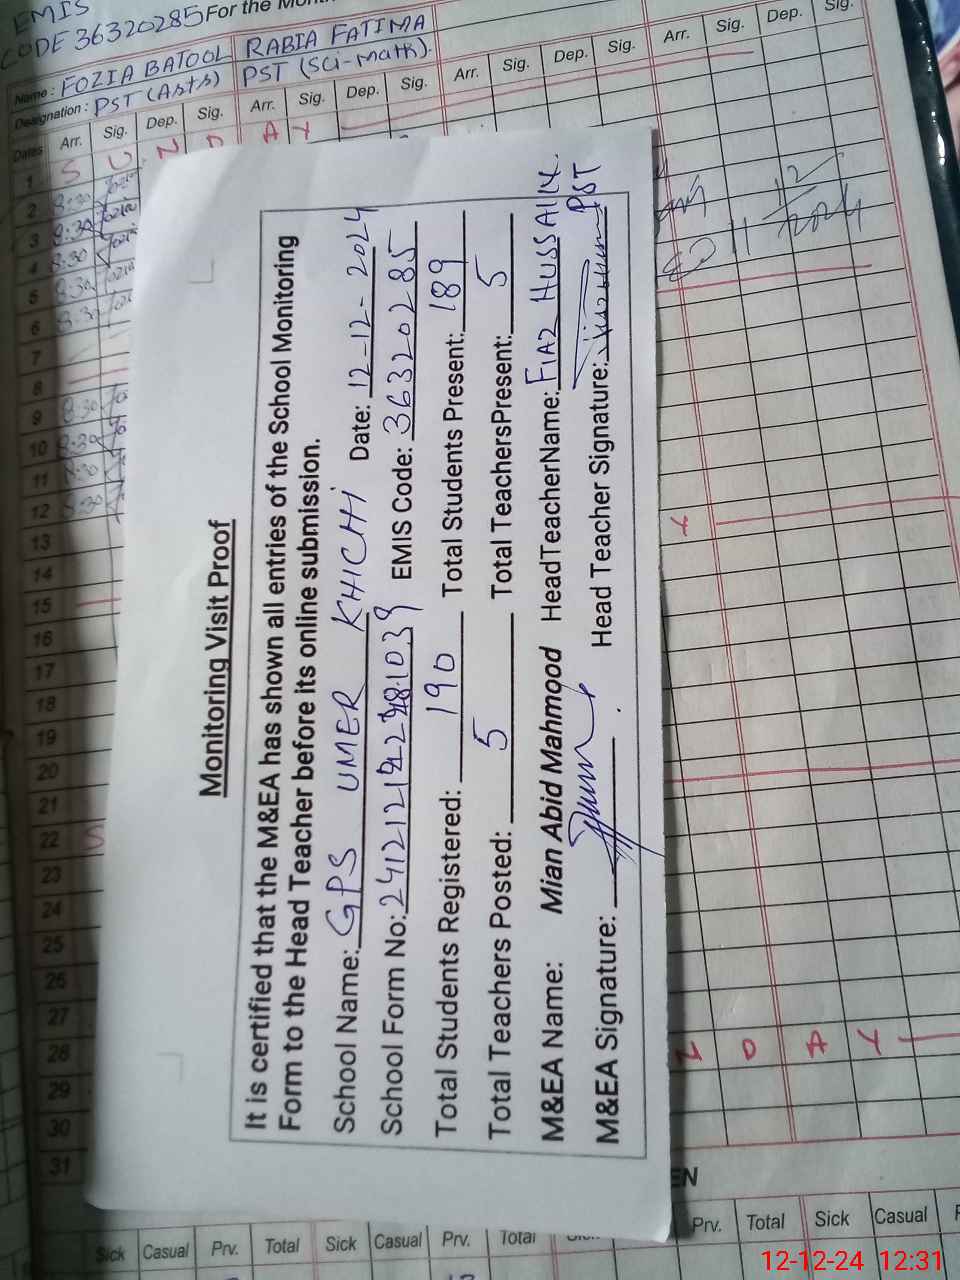 EMIS
CODE 36320285 For the
Name : FOZIA BATOOL RABIA FATIMA
Designation : PST (Arts) PST (Sci-math).
Dates Arr. Sig. Dep. Sig. Arr. Sig. Dep. Sig. Arr. Sig. Dep. Sig. Arr. Sig. Dep. Sig.
1 S U N D A Y
2 8:30
3 8:30
4 8:30
5 8:30
6 8:30
7
8
9 8:30
10 8:30
11 8:30
12 8:30
13
14
15
16
17
18
19
20
21
22 S
23
24
25
26
27
28
29
30
31
N D A Y
Monitoring Visit Proof
It is certified that the M&EA has shown all entries of the School Monitoring
Form to the Head Teacher before its online submission.
School Name: GPS UMER KHICHI Date: 12-12-2024
School Form No: EMIS Code: 36320285
Total Students Registered: 190 Total Students Present: 189
Total Teachers Posted: 5 Total TeachersPresent: 5
M&EA Name: Mian Abid Mahmood HeadTeacherName: FIAZ HUSSAIN
M&EA Signature: Head Teacher Signature: PST
EN
Sick Casual Prv. Total Sick Casual Prv. Total Prv. Total Sick Casual
12-12-24 12:31